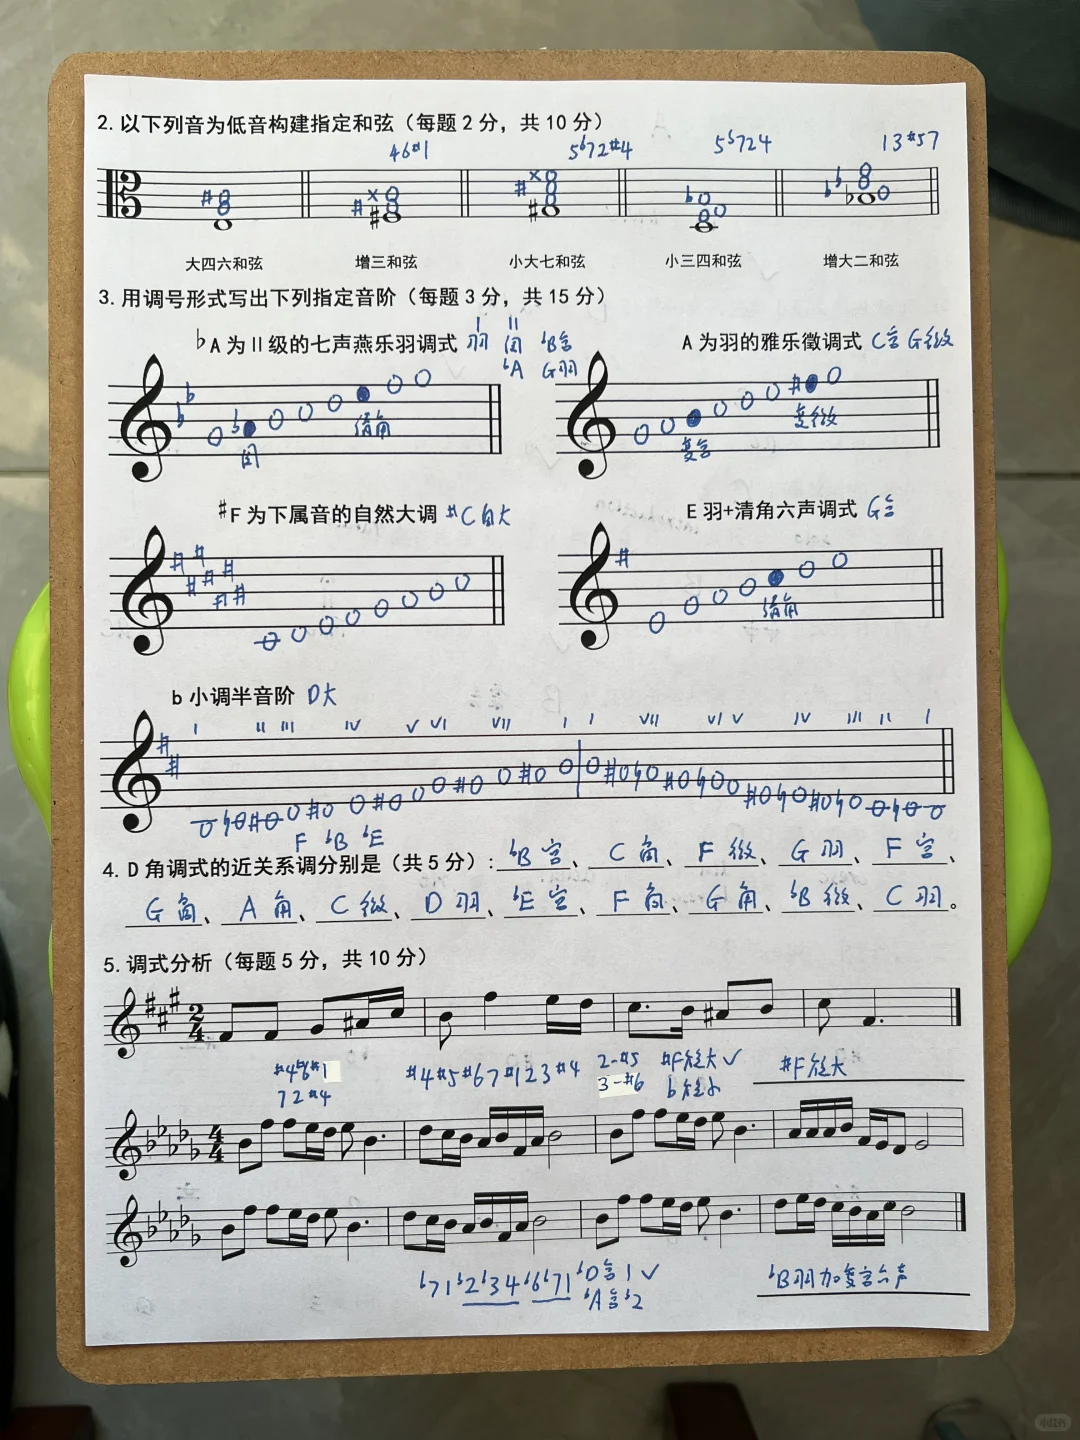 2. 以下列音为低音构建指定和弦（每题2分，共10分）
46#1 5b72#4 5b724 13#57
大四六和弦 增三和弦 小大七和弦 小三四和弦 增大二和弦
3. 用调号形式写出下列指定音阶（每题3分，共15分）
I II
♭A为II级的七声燕乐羽调式 羽 闰 ♭B宫
♭A G羽
A为羽的雅乐徵调式 C宫 G徵
闰 清角
变宫 变徵
♯F为下属音的自然大调 #C自大
E羽+清角六声调式 G宫
清角
b小调半音阶 D大
I II III IV V VI VII I I VII VI V IV III II I
F ♭B ♭E
4. D角调式的近关系调分别是（共5分）：♭B宫、C商、F徵、G羽、F宫、
G商、A角、C徵、D羽、♭E宫、F商、G角、♭B徵、C羽。
5. 调式分析（每题5分，共10分）
2/4
#4#6#1 #4#5#67#123#4 2-#5 #F弦大✓ #F弦大
72#4 3-#6 b弦小
4/4
♭71♭2♭34♭6♭71 ♭D宫1✓ ♭B羽加变宫六声
♭A宫♭2